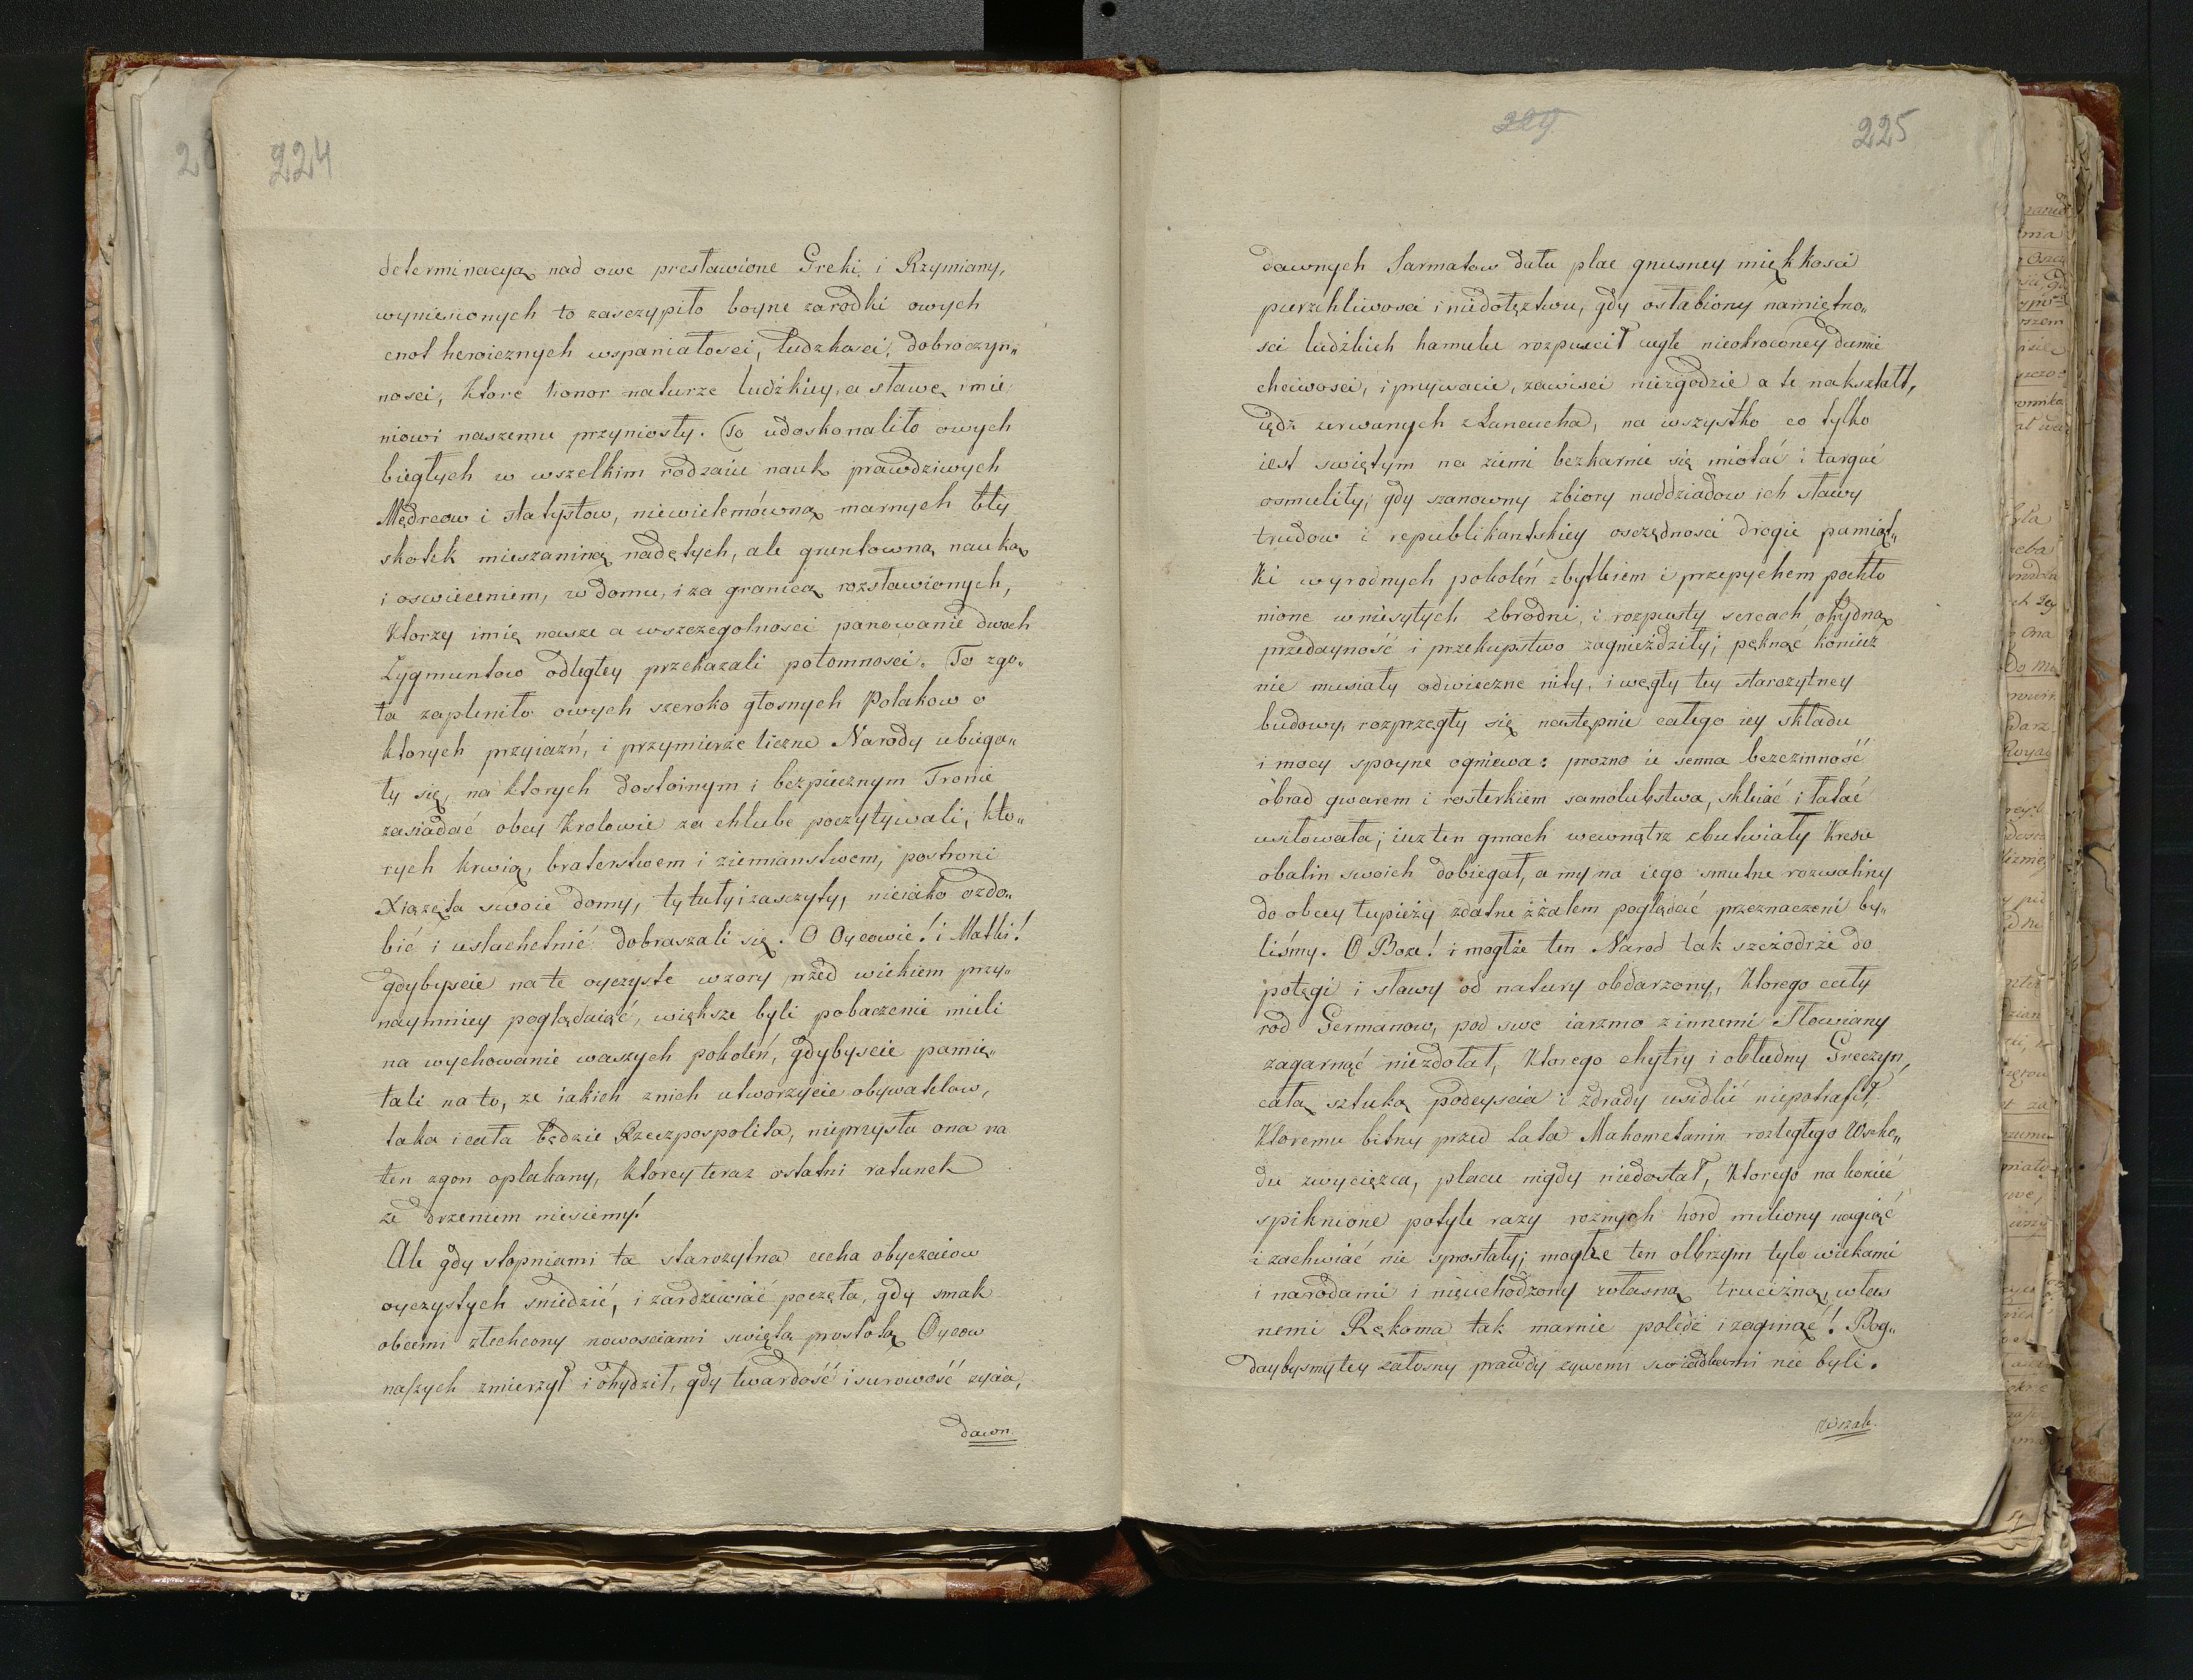 224
determinacyą nad owe presławione Greki i Rzymiany,
wyniesionych to zasczypiło boyne zarodki owych
cnot heroicznych wspaniałosci, ludzkosci, dobroczyn„
nosci, ktore honor naturze ludzkiey, a sławę imie
niowi naszemu przyniosły. To udoskonaliło owych
biegłych w wszelkim rodzaiu nauk prawdziwych
Mędrcow i statystow, niewielemówną marnych bły
skotek mieszaniną nadętych, ale gruntowną nauką
i oswieceniem, w domu, i za granicą rozsławionych,
Ktorzy imię nasze a wszczegolnosci panowanie dwoch
Zygmuntow odległey przekazali potomnosci. To zgo„
ła zapleniło owych szeroko głosnych Polakow o
ktorych przyiazń, i przymierze liczne Narody ubiega„
ły się, na ktorych dostoinym i bezpiecznym Tronie
zasiadać obcy Krolowie za chlubę poczytywali, kto„
rych krwią, braterstwem i ziemianstwem, postronni
Xiążęta swoie domy, tytuły i zasczyty, nieiako ozdo„
bić i uslachetnić dobraszali się. O Oycowie! i Matki!
gdybyscie na te oyczyste wzory przed wiekiem przy„
naymniey poglądaiąć, większe byli pobaczenie mieli
na wychowanie waszych pokoleń, gdybyscie pamię„
tali na to, ze iakich znich utworzycie obywatelow,
taka i cała będzie Rzeczpospolita, nieprzyszła ona na
ten zgon opłakany, ktorey teraz ostatni ratunek
ze drzeniem niesiemy!
Ale gdy stopniami ta starozytna cecha obyczaiow
oyczystych sniedzić, i zardzewiać poczęła, gdy smak
obcemi złechcony nowosciami swiętą prostotą Oycow
naszych zmierzył i ohydził, gdy twardość i surowość zycia,
dawn.
229
225
dawnych Sarmatow dała plac gnusney miękkosci
pierzchliwosci i niedołęztwu, gdy osłabiony namiętno„
sci ludzkich hamulec rozpuscił cugle nieokroconey dumie
chciwosci, i prywacie, zawisci niezgodzie a te nakształt,
iędz zerwanych z Łancucha, na wszystko co tylko
iest swiętym na ziemi bezkarnie się miotać i targać
osmieliły, gdy szanowny zbiory naddziadow ich sławy
trudow i republikantskiey osczędnosci drogie pamiąt„
ki wyrodnych pokoleń zbytkiem i przepychem pochło
nione w niesytych zbrodni, i rozpusty sercach ohydną
przedayność i przekupstwo zagnieździły; pęknąc koniecz
nie musiały odwieczne nity, i węgły tey starozytney
budowy, rozprzęgły się następnie całego iey składu
i mocy spoyne ogniewa: prozno ie senna bezczinność
obrad gwarem i rosterkiem samolubstwa, skleiać i łatać
usiłowała; iuz ten gmach wewnątrz zbutwiały Kresu
obalin swoich dobiegał, a my na iego smutne rozwaliny
do obcey łupieży zdatne z żalem poglądać przeznaczeni by„
liśmy. O Boze! i mogłże ten Narod tak szczodrze do
potęgi i sławy od natury obdarzony, Ktorego cały
rod Germanow, pod swe iarzmo z innemi Słowiany
zagarnąć niezdołał, Ktorego chytry i obłudny Greczyn,
całą sztuką podeyscia i zdrady usidlić niepotrafił,
Ktoremu bitny przed Laty Mahometanin rozległego Wscho„
du zwyciężca, placu nigdy niedostał, Ktorego na koniec
spiknione potyle razy roznych hord miliony nagiąć
i zachwiać nie sprostały; mogłze ten olbrzym tylo wiekami
i narodami i nieuchodzony własną trucizną, włas
nemi Rękoma tak marnie poledz i zaginąć! Bog„
daybysmy tey załosny prawdy zywemi swiadkami nie byli.
Wszak.